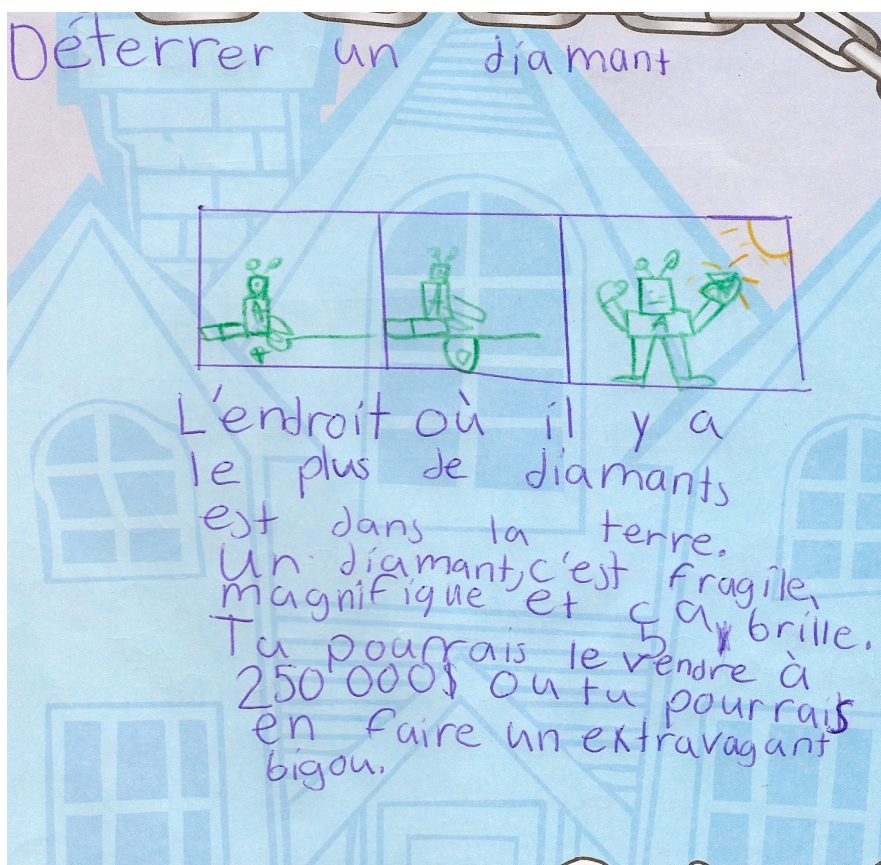 Déterrer un diamant
L'endroit où il y a
le plus de diamants
est dans la terre.
Un diamant, c'est fragile,
magnifique et ça brille.
Tu pourrais le vendre à
250 000$ ou tu pourrais
en faire un extravagant
bigou.